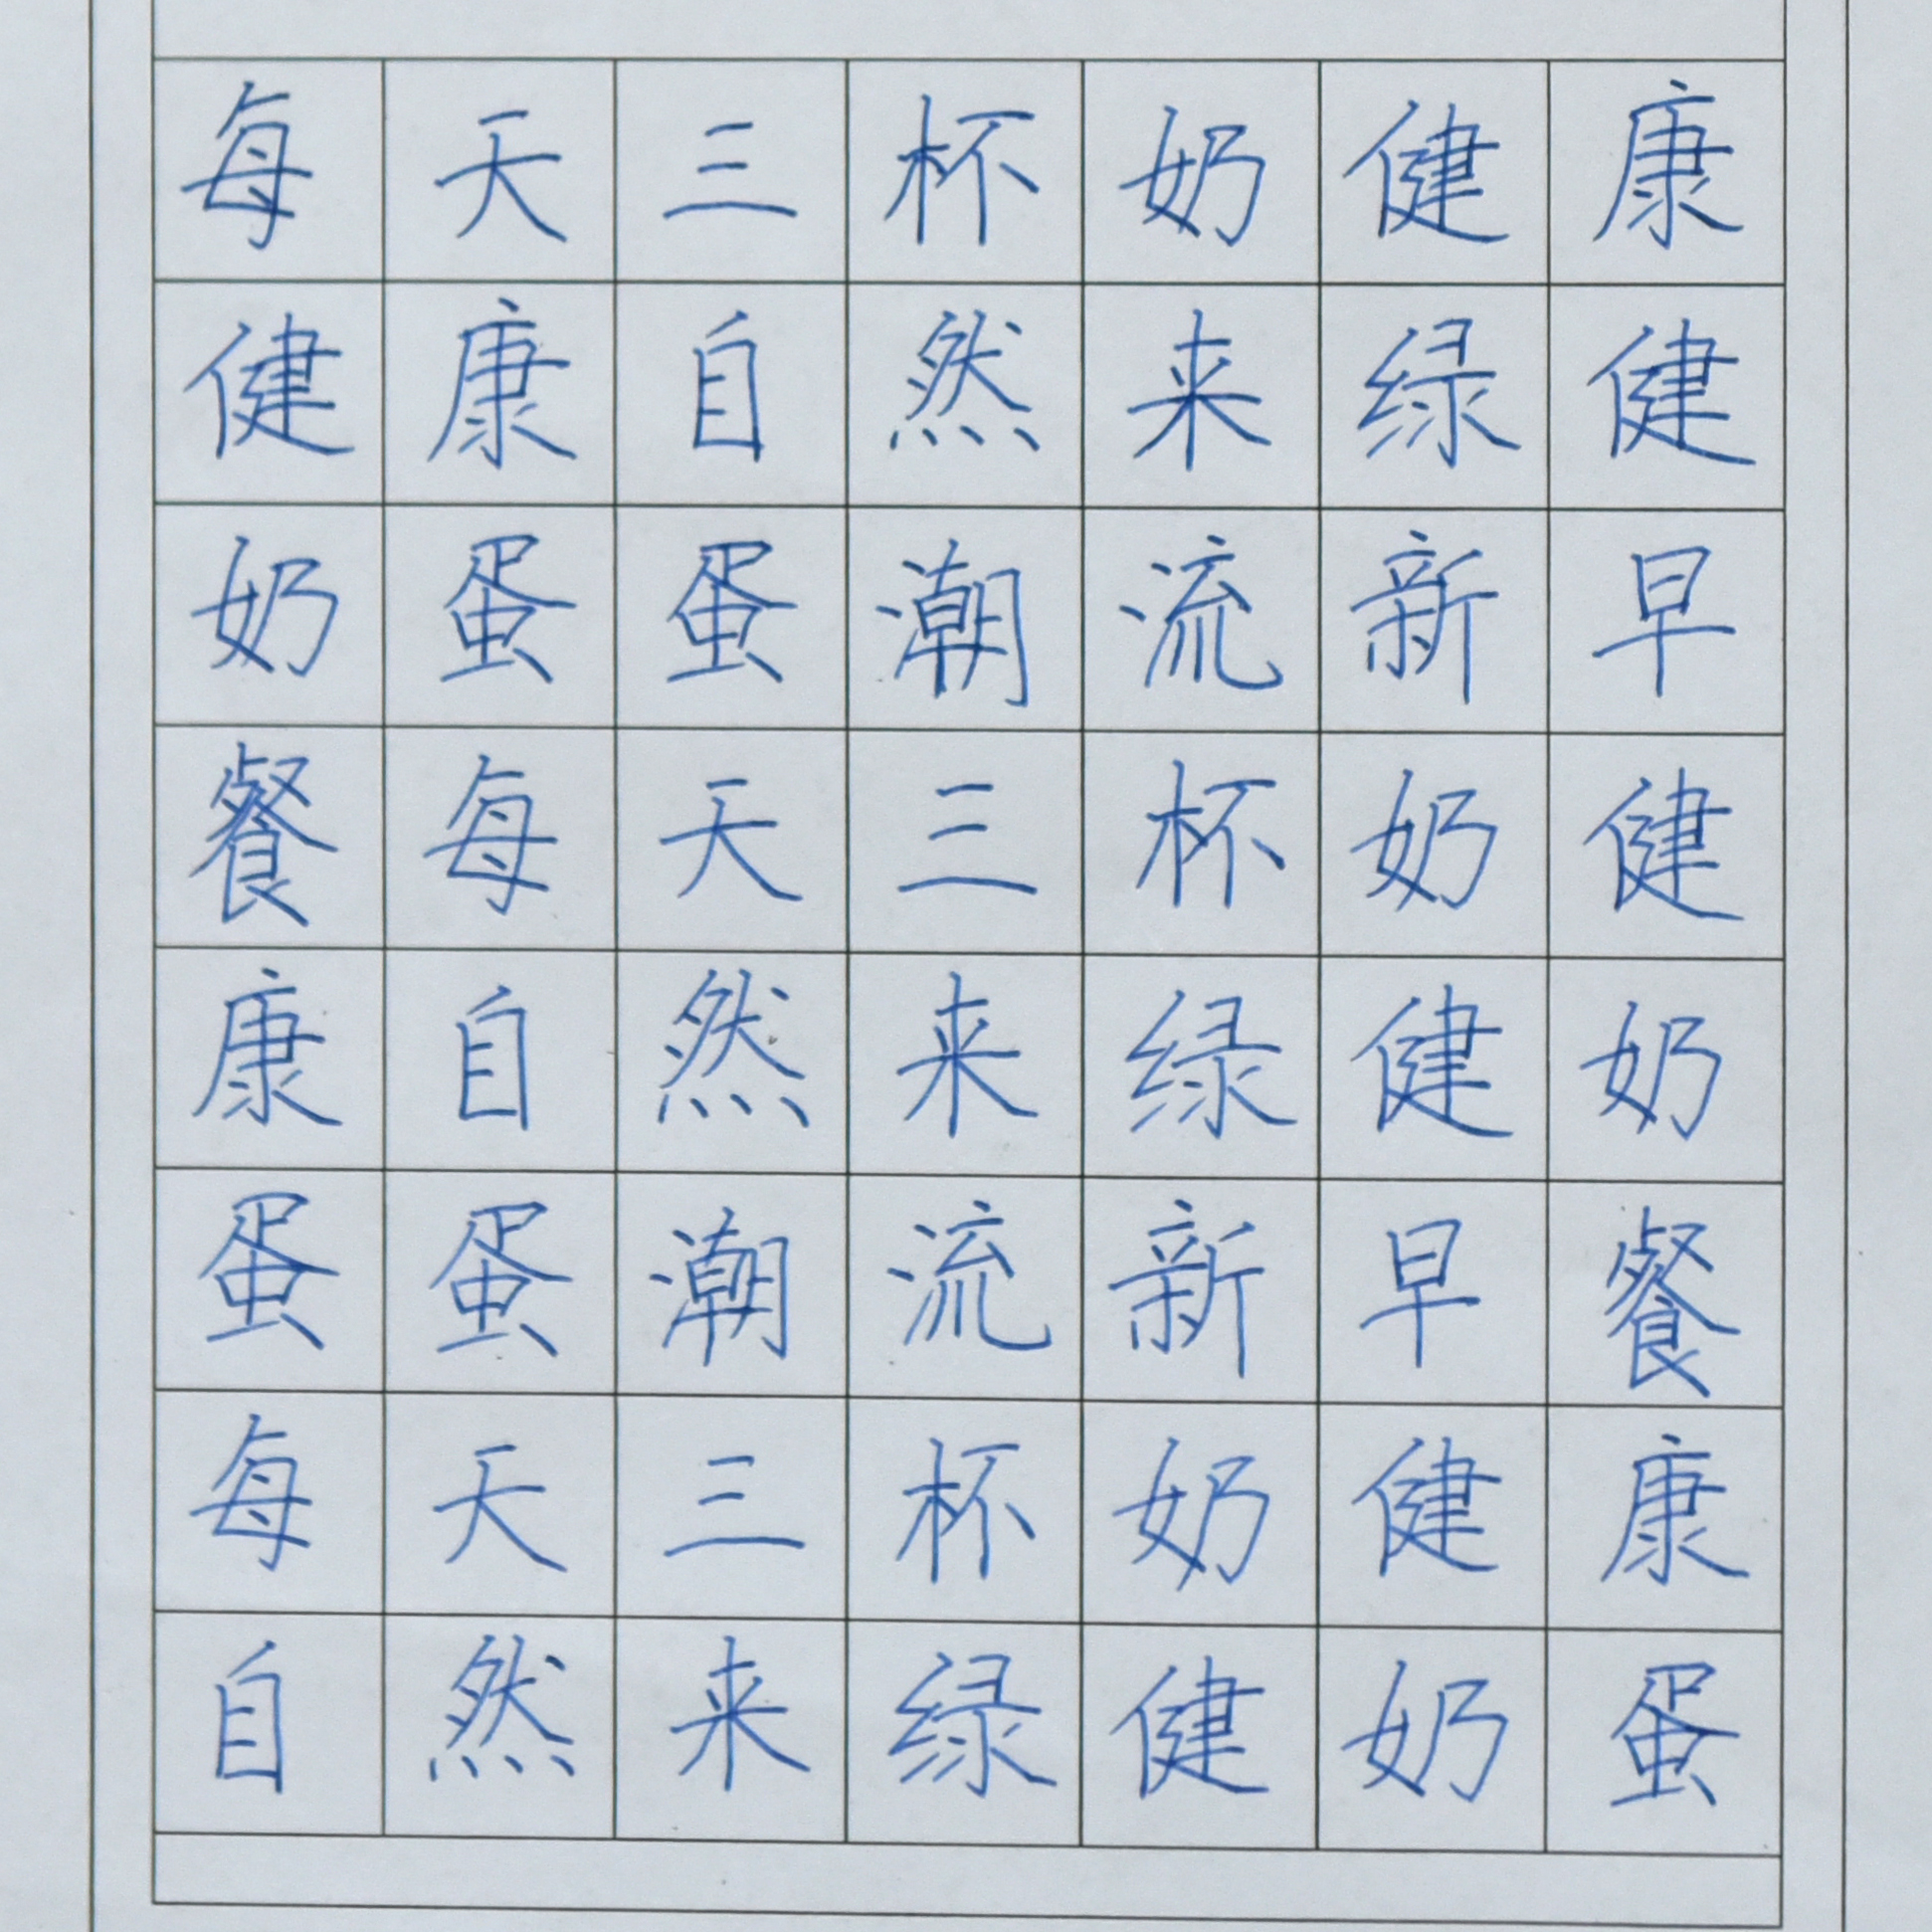 每天三杯奶健康
健康自然来绿健
奶蛋蛋潮流新早
餐每天三杯奶健
康自然来绿健奶
蛋蛋潮流新早餐
每天三杯奶健康
自然来绿健奶蛋